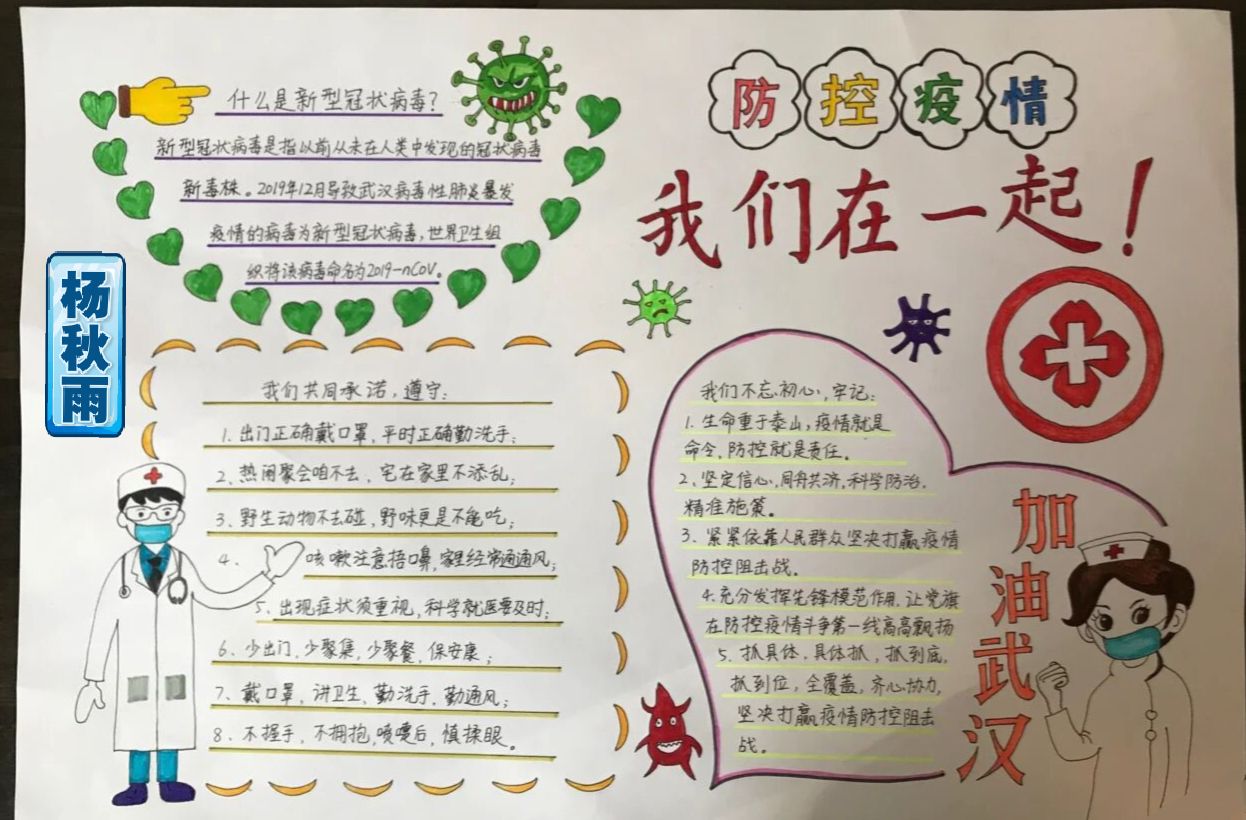 什么是新型冠状病毒?
新型冠状病毒是指以前从未在人类中发现的冠状病毒
新毒株。2019年12月导致武汉病毒性肺炎暴发
疫情的病毒为新型冠状病毒,世界卫生组
织将该病毒命名为2019-nCoV。
杨秋雨
防控疫情
我们在一起!
我们共同承诺,遵守:
1.出门正确戴口罩,平时正确勤洗手;
2、热闹聚会咱不去,宅在家里不添乱;
3、野生动物不去碰,野味更是不能吃;
4、咳嗽注意捂口鼻,家里经常通通风;
5、出现症状须重视,科学就医要及时;
6、少出门,少聚集,少聚餐,保安康;
7、戴口罩,讲卫生,勤洗手,勤通风;
8、不握手,不拥抱,喷嚏后,慎揉眼。
我们不忘初心,牢记:
1.生命重于泰山,疫情就是
命令,防控就是责任。
2、坚定信心,同舟共济,科学防治,
精准施策。
3、紧紧依靠人民群众坚决打赢疫情
防控阻击战。
4.充分发挥先锋模范作用,让党旗
在防控疫情斗争第一线高高飘扬
5、抓具体,具体抓,抓到底,
抓到位,全覆盖,齐心协力,
坚决打赢疫情防控阻击
战。
加油武汉